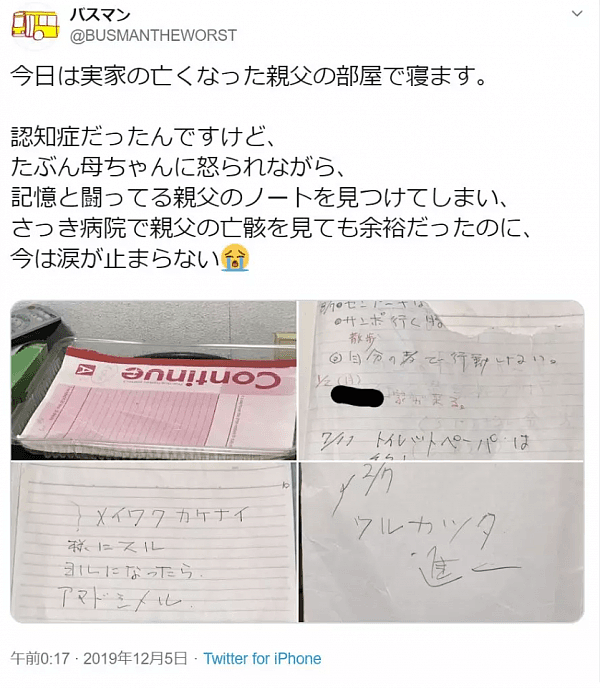 バスマン
@BUSMANTHEWORST
今日は実家の亡くなった親父の部屋で寝ます。
認知症だったんですけど、
たぶん母ちゃんに怒られながら、
記憶と闘ってる親父のノートを見つけてしまい、
さっき病院で親父の亡骸を見ても余裕だったのに、
今は涙が止まらない😭
Continue
A
サンポ行く時
散歩
自分の考で行動しない。
来る。
7/17 トイレットペーパーは
メイワクカケナイ
様にスル
ヨルになったら、
アマドシメル.
2/7
ワルカッタ
進 ←
午前0:17 · 2019年12月5日 · Twitter for iPhone